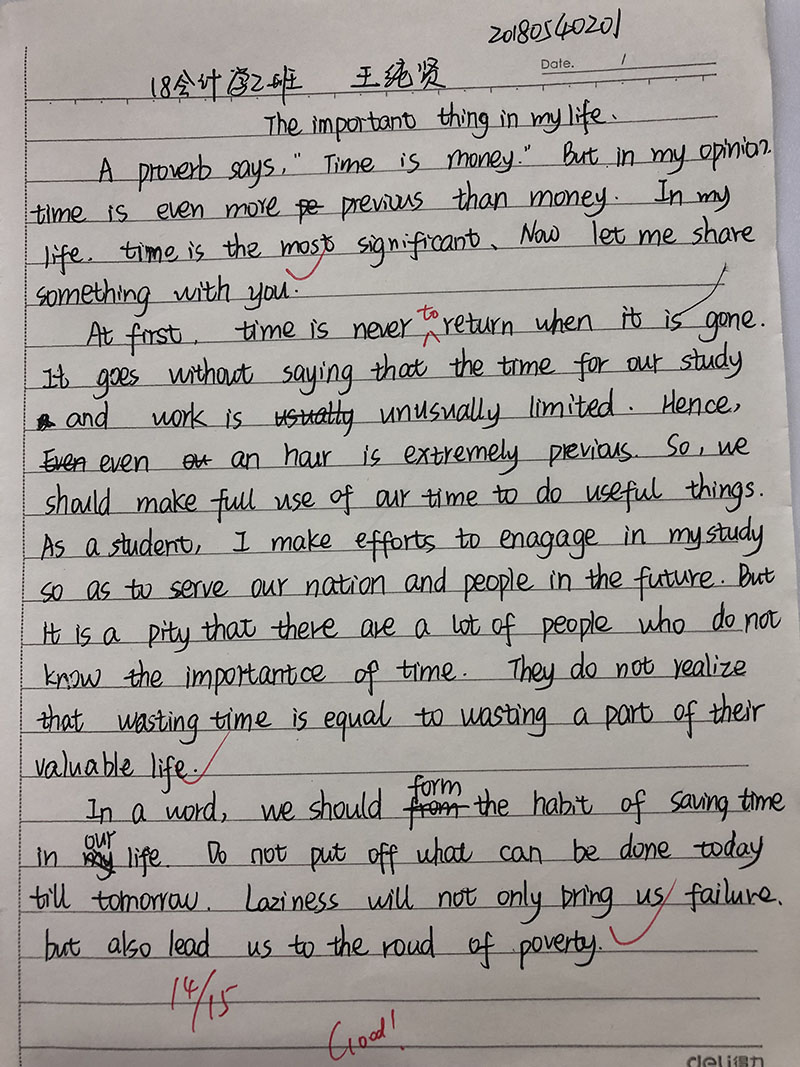 20180540201
18会计学2班 王纯贤
Date. /
The important thing in my life.
A proverb says, "Time is money." But in my opinion
time is even more pe previous than money. In my
life. time is the most significant. Now let me share
something with you.
At first, time is never to return when it is gone.
It goes without saying that the time for our study
and work is usually unusually limited. Hence,
Even even ou an hour is extremely previous. So, we
should make full use of our time to do useful things.
As a student, I make efforts to enagage in my study
so as to serve our nation and people in the future. But
it is a pity that there are a lot of people who do not
know the importantce of time. They do not realize
that wasting time is equal to wasting a part of their
valuable life.
In a word, we should from form the habit of saving time
in my our life. Do not put off what can be done today
till tomorrow. Laziness will not only bring us failure.
but also lead us to the roud of poverty.
14/15
Good!
deli得力